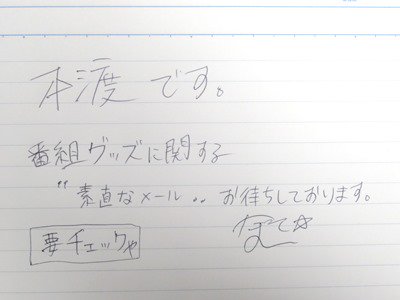 本渡です。
番組グッズに関する
“素直なメール„ お待ちしております。
要チェックや
ぽて☆